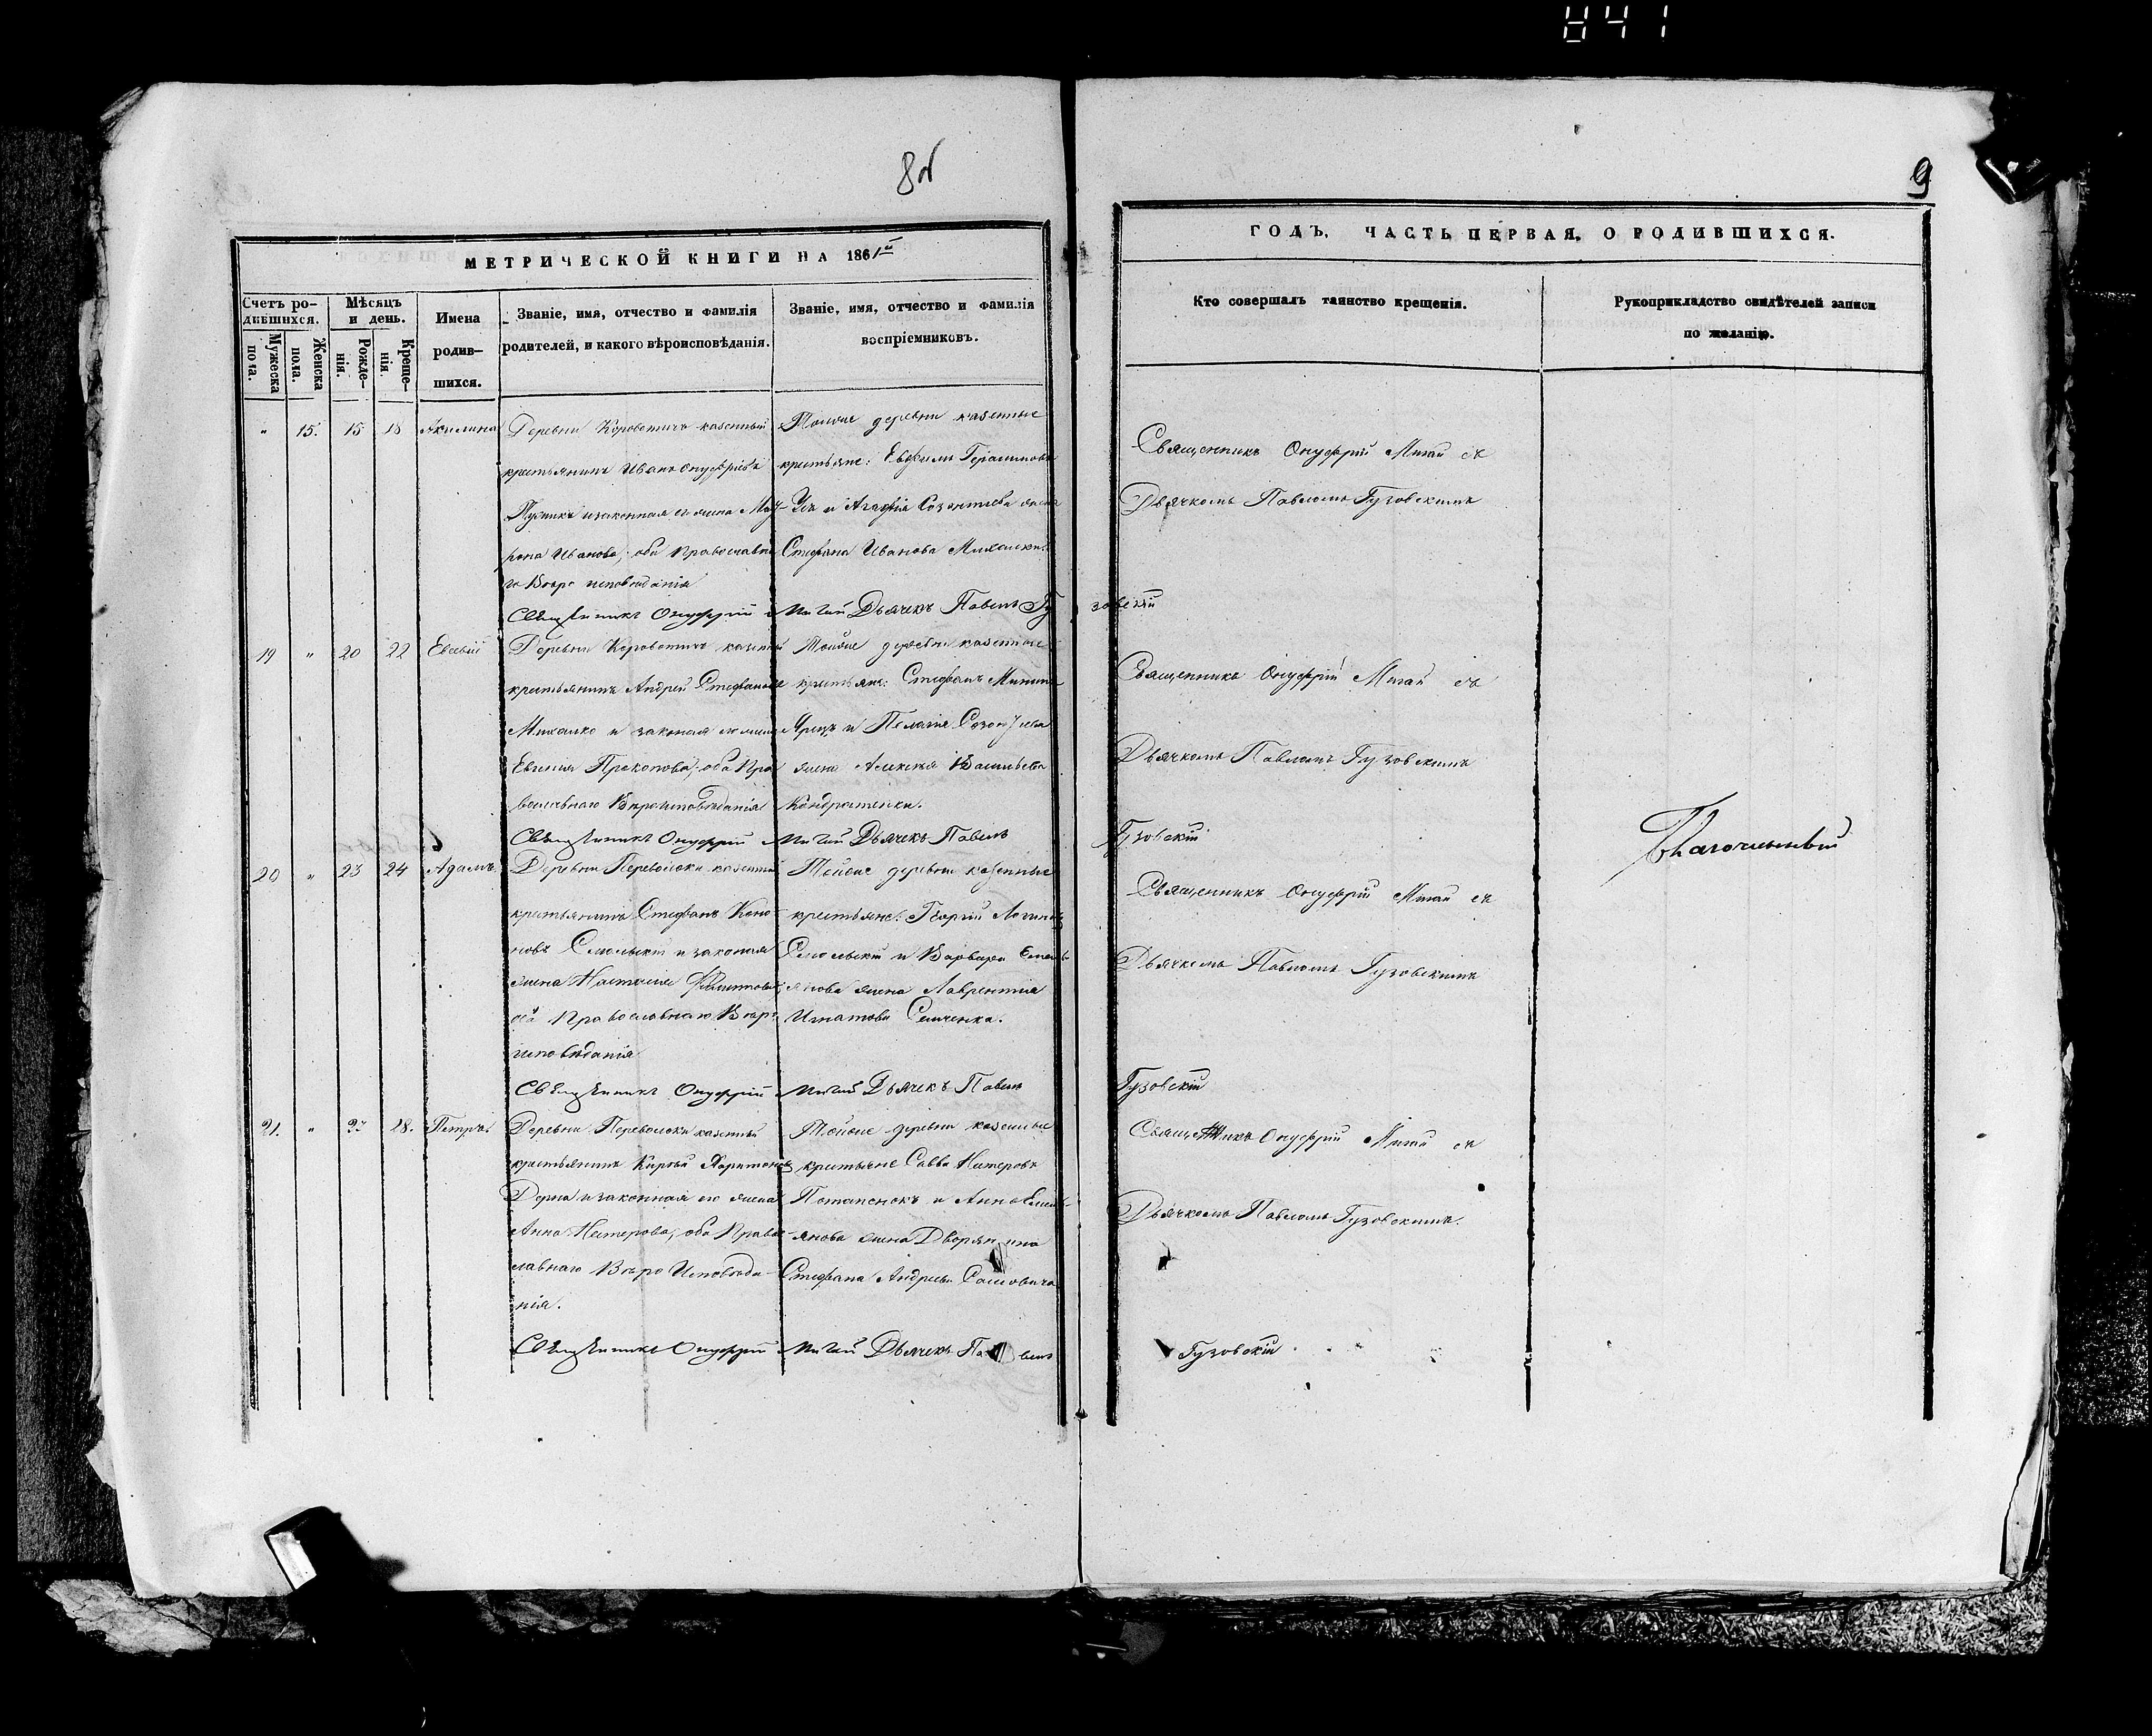 841
8об
9
МЕТРИЧЕСКОЙ КНИГИ НА 1861й
ГОДЪ, ЧАСТЬ ПЕРВАЯ, О РОДИВШИХСЯ.
Счетъ ро-
дившихся.
Мужеска пола.
Женска пола.
Мѣсяцъ
и день.
Рожде-
нія.
Креще-
нія.
Имена
родив-
шихся.
Званіе, имя, отчество и фамилія
родителей, и какого вѣроисповѣданія.
Званіе, имя, отчество и фамилія
воспріемниковъ.
Кто совершалъ таинство крещенія.
Рукоприкладство свидѣтелей записи
по желанію.
" 15. 15 18 Акилина
Деревни казенный
крестьянинъ Иванъ Онуфріевъ
и законная его жена Мав-
рона Иванова, оба Православна-
го Вѣро исповѣданія
Тойже деревни казенные
крестьяне: Евфимъ Герасимовъ
и Агафія жена
Стефана Иванова
Священникъ Онуфрій Мигай съ
Дьячкомъ Павломъ Гузовскимъ
Священникъ Онуфрій Мигай Дьячекъ Павелъ Гузовскій
19 " 20 22 Евсевій
Деревни казенный
крестьянинъ Андрей Стефановъ
Михалко и законная
Евгенія Прокопова, оба Пра
вославнаго Вѣроисповѣданія
Тойже деревни казенные
крестьяне: Стефанъ Мининъ
и Пелагія
жена Алексѣя Васильева
Кондратенки.
Священникъ Онуфрій Мигай съ
Дьячкомъ Павломъ Гузовскимъ
Священникъ Онуфрій Мигай Дьячекъ Павелъ Гузовскій
Благочинный
20 " 23 24 Адамъ
Деревни Переволоки казенный
крестьянинъ Стефанъ Коно-
новъ Смольскій и законная
жена Наталія Филиппова,
оба Православнаго Вѣро-
исповѣданія
Тойже деревни казенные
крестьяне: Георгій Логиновъ
Смольскій и Варвара Емель
янова жена Лаврентія
Игнатова Семченка.
Священникъ Онуфрій Мигай съ
Дьячкомъ Павломъ Гузовскимъ
Священникъ Онуфрій Мигай Дьячекъ Павелъ Гузовскій
21. " 27 28. Петръ
Деревни Переволоки казенный
крестьянинъ Харитоновъ
и законная его жена
Анна Нестерова, оба Правос-
лавнаго Вѣро Исповѣда-
нія.
Тойже деревни казенные
крестьяне Савва Нестеровъ
Потапенокъ и Анна Емель-
янова жена Дворянина
Стефана Андреева
Священникъ Онуфрій Мигай съ
Дьячкомъ Павломъ Гузовскимъ.
Священникъ Онуфрій Мигай Дьячекъ Павелъ Гузовскій